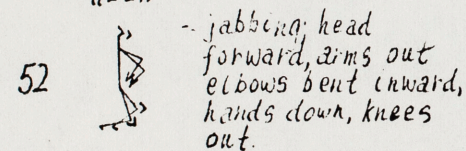 52
-- jabbing; head
forward, arms out
elbows bent inward,
hands down, knees
out.